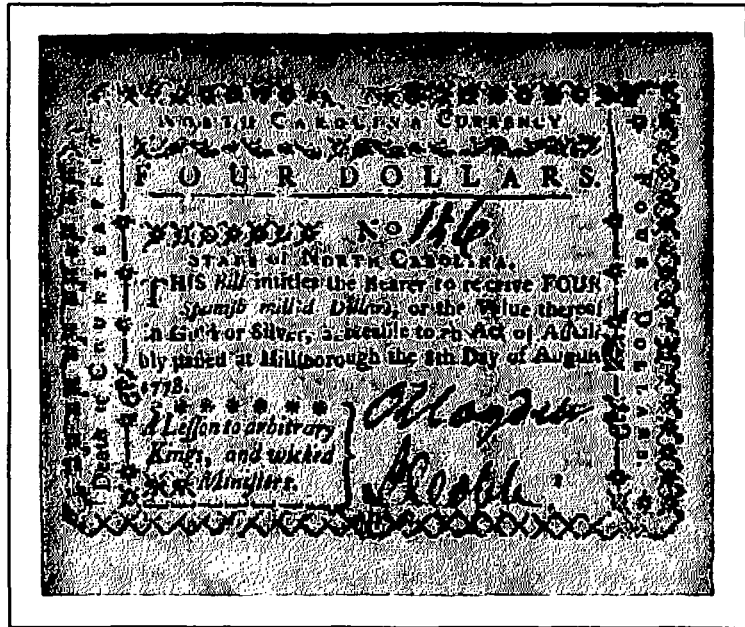 NORTH CAROLINA CURRENCY
FOUR DOLLARS.
No 186
STATE of NORTH CAROLINA.
THIS Bill intitles the Bearer to receive FOUR
Spanish mill'd Dollars, or the Value thereof
in Gold or Silver, agreeable to an Act of Assem
bly passed at Hillsborough the 8th Day of August
1778.
A Lesson to arbitrary
Kings, and wicked
Ministers.
Death to Counterfeit
FOUR DOLLARS.